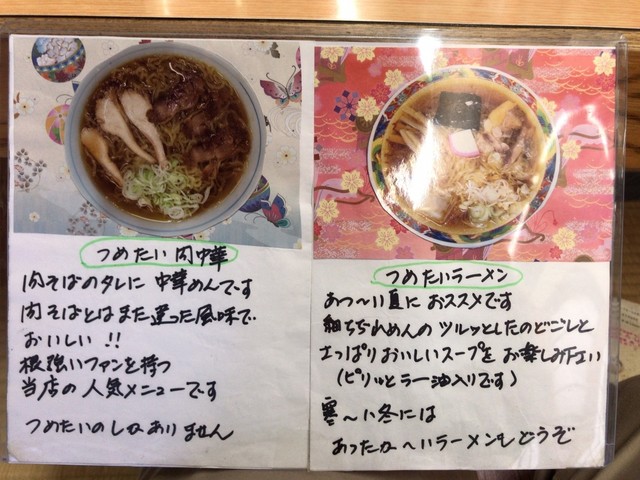 つめたい 肉中華
肉そばのタレに 中華めんです
肉そばとはまた違った風味で
おいしい!!
根強いファンを持つ
当店の人気メニューです
つめたいのしかありません
つめたいラーメン
あつ〜い夏に おススメです
細ちぢれめんの ツルッとしたのどごしと
さっぱりおいしいスープを お楽しみ下さい
(ピリッとラー油入りです)
寒〜い冬には
あったか〜いラーメンもどうぞ